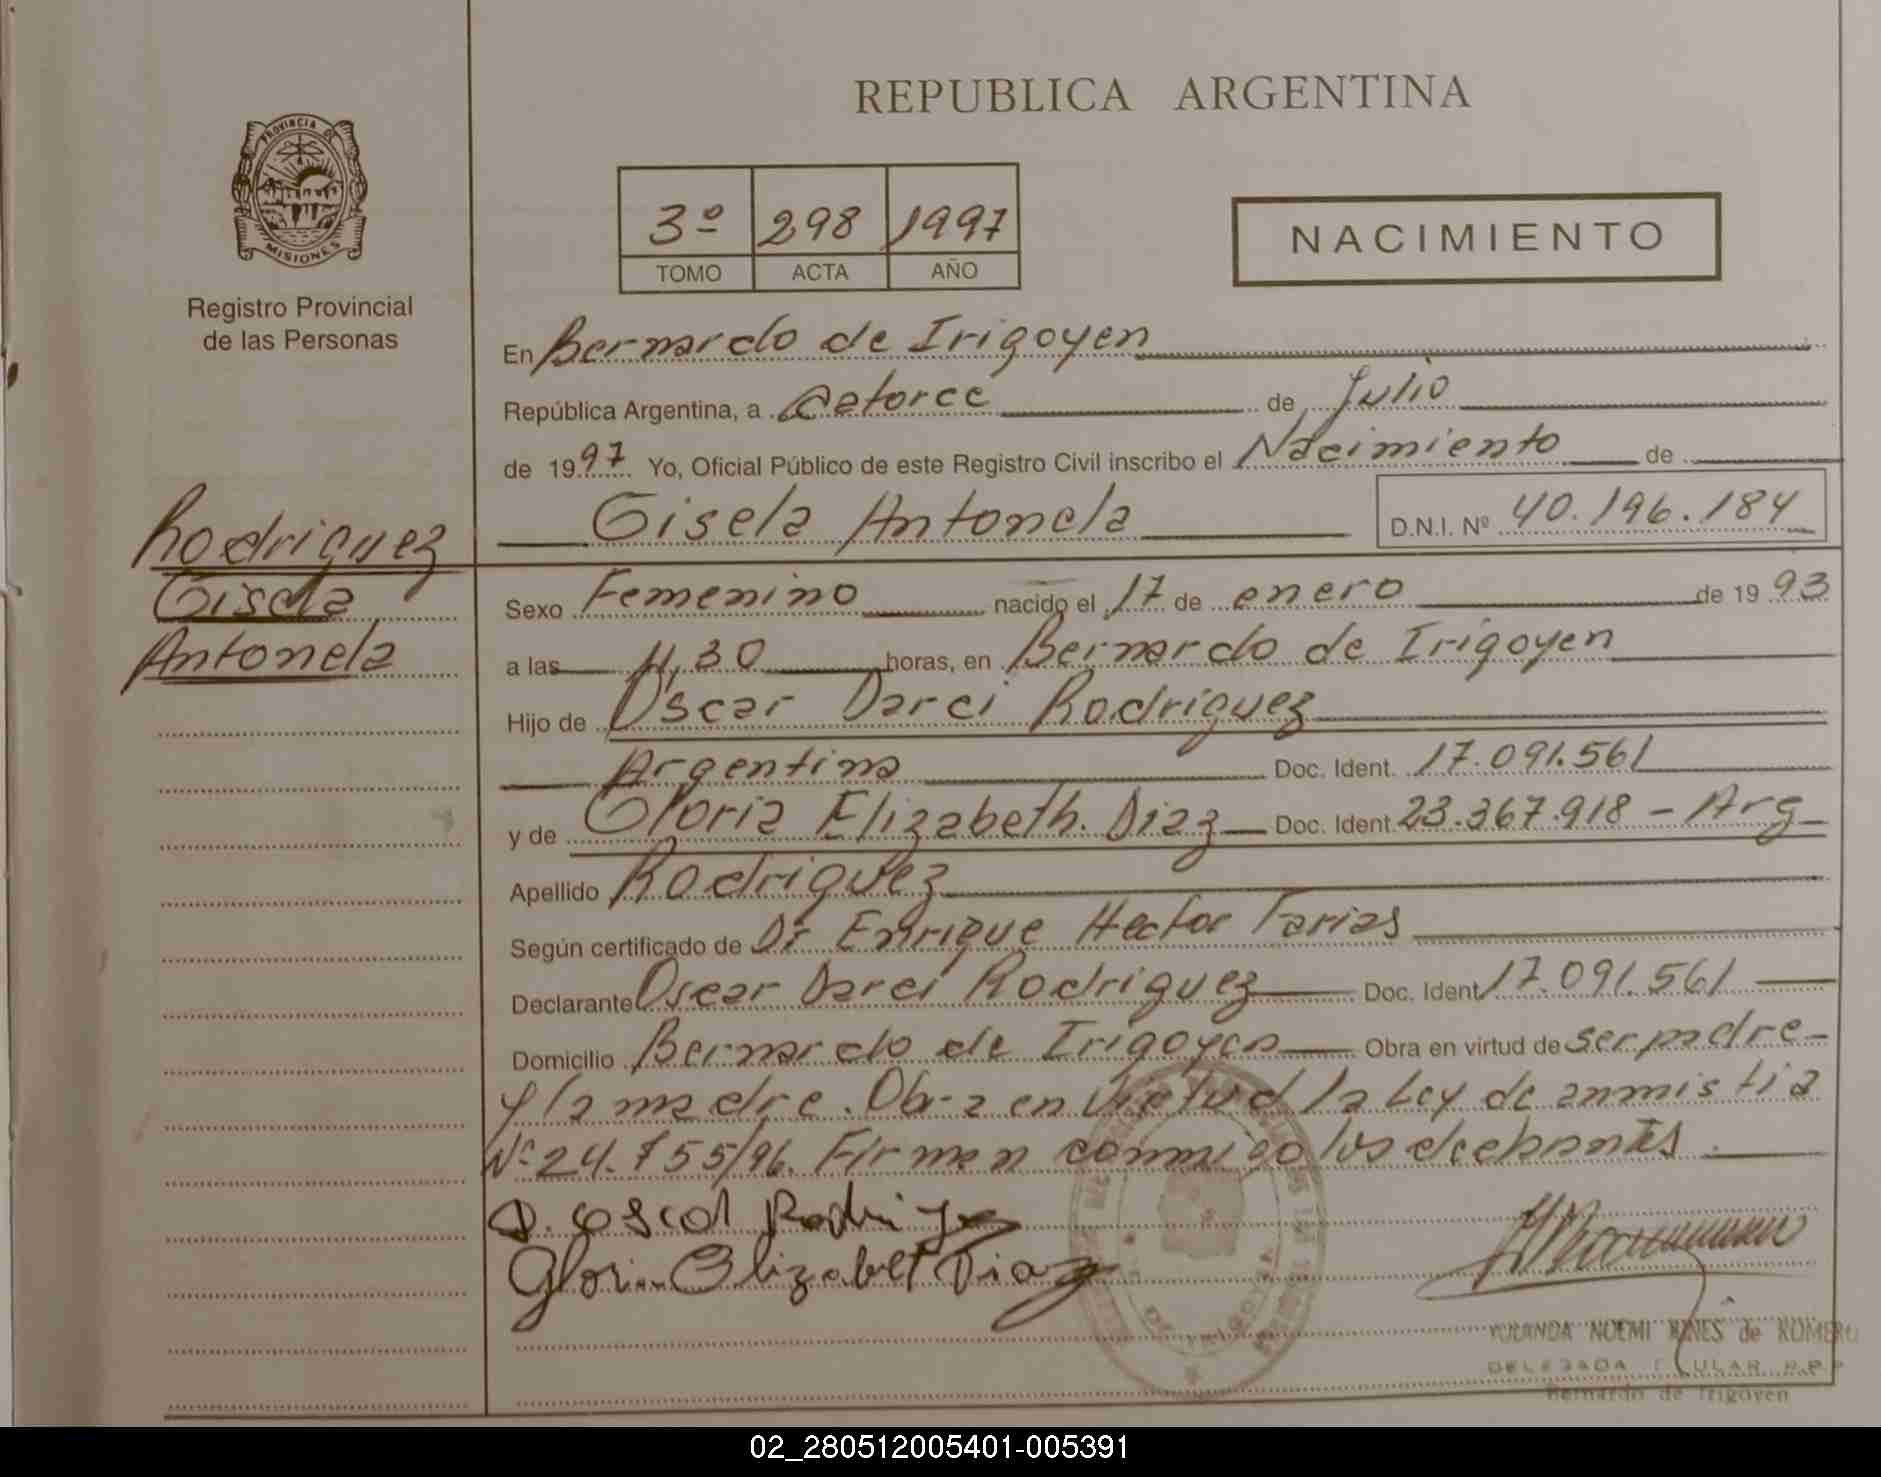 REPUBLICA ARGENTINA
PROVINCIA DE
MISIONES
Registro Provincial
de las Personas
3º 298 1997
TOMO ACTA AÑO
NACIMIENTO
En Bernardo de Irigoyen
República Argentina, a Catorce de Julio
de 1997 Yo, Oficial Público de este Registro Civil inscribo el Nacimiento de
Gisela Antonela D.N.I. Nº 40.196.184
Rodriguez
Gisela
Antonela
Sexo Femenino nacido el 17 de enero de 1993
a las 11,30 horas, en Bernardo de Irigoyen
Hijo de Oscar Darci Rodriguez
Argentina Doc. Ident. 17.091.561
y de Gloria Elizabeth. Diaz Doc. Ident. 23.367.918 - Arg
Apellido Rodriguez
Según certificado de Dr Enrique Hector Farias
Declarante Oscar Darci Rodriguez Doc. Ident 17.091.561
Domicilio Bernardo de Irigoyen Obra en virtud de ser padre
y la madre. Obra en Virtud la Ley de anmistia
Nº 24.755/96. Firman conmigo los
D. Oscar Rodriguez
Gloria Elizabet Diaz
YOLANDA NOEMI de ROMERO
DELEGADA TITULAR R.P.P
Bernardo de Irigoyen
02_280512005401-005391